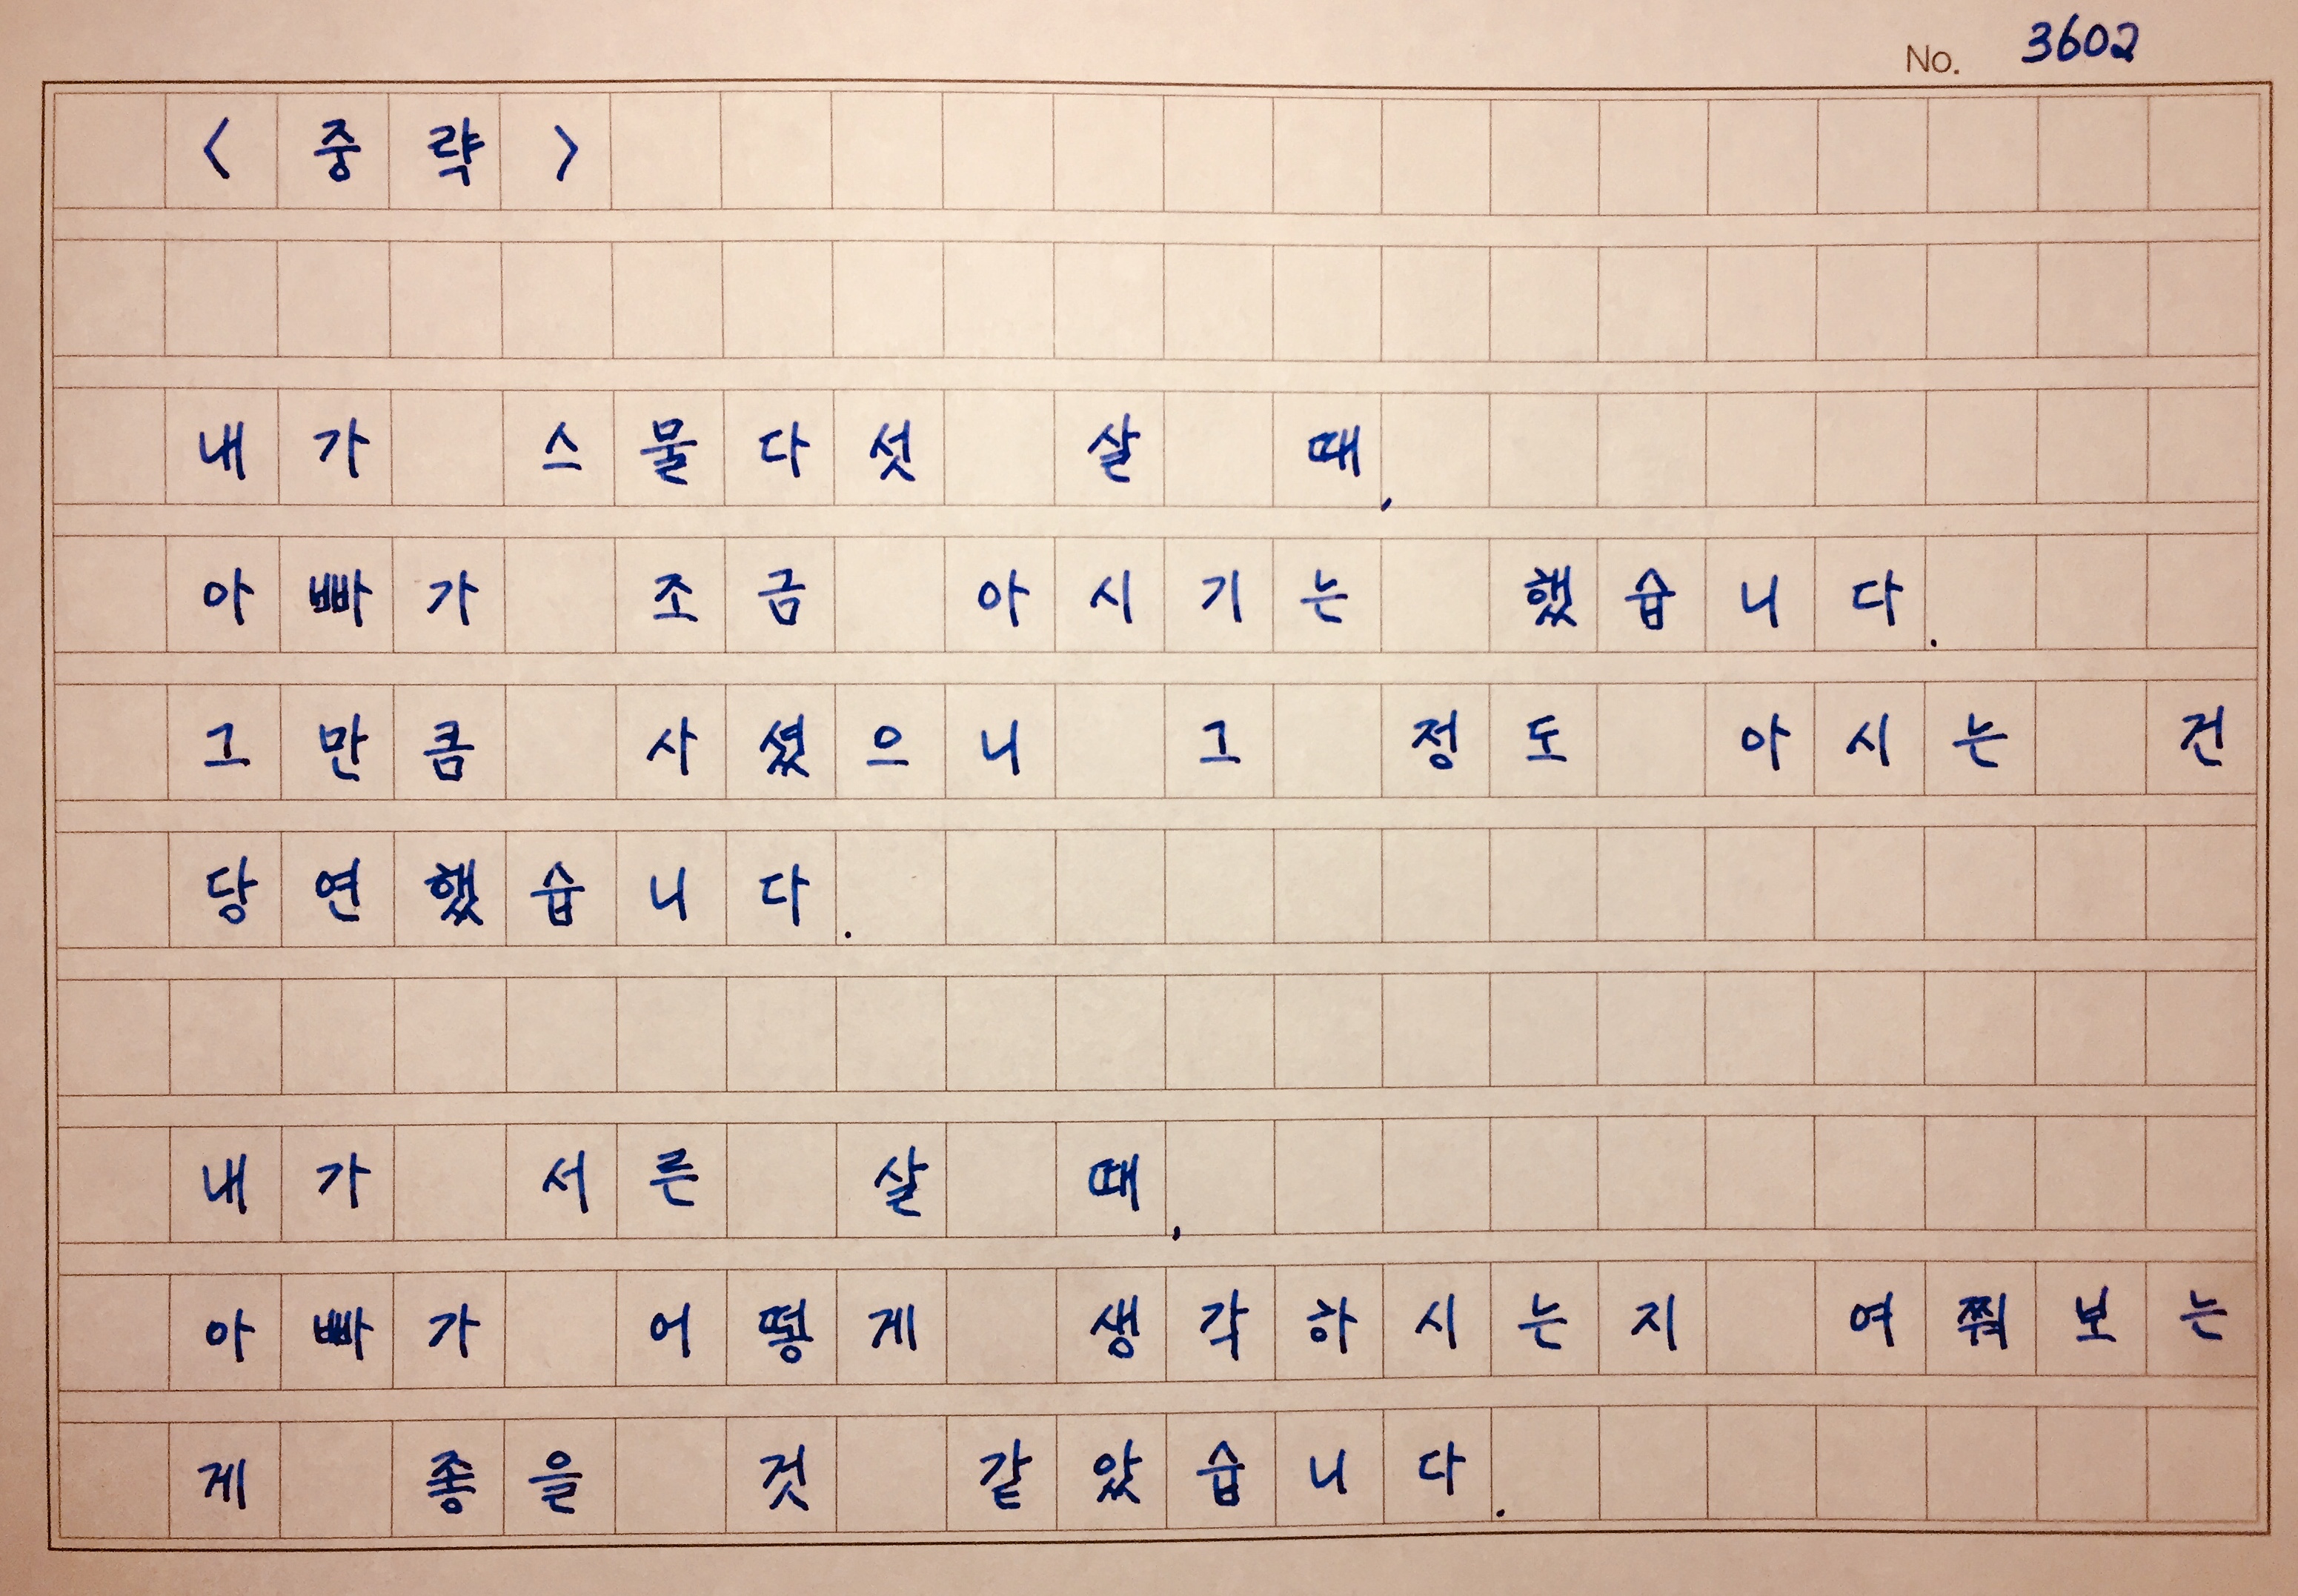 No. 3602
< 중략 >
내가 스물다섯 살 때,
아빠가 조금 아시기는 했습니다.
그만큼 사셨으니 그 정도 아시는 건
당연했습니다.
내가 서른 살 때,
아빠가 어떻게 생각하시는지 여쭤보는
게 좋을 것 같았습니다.